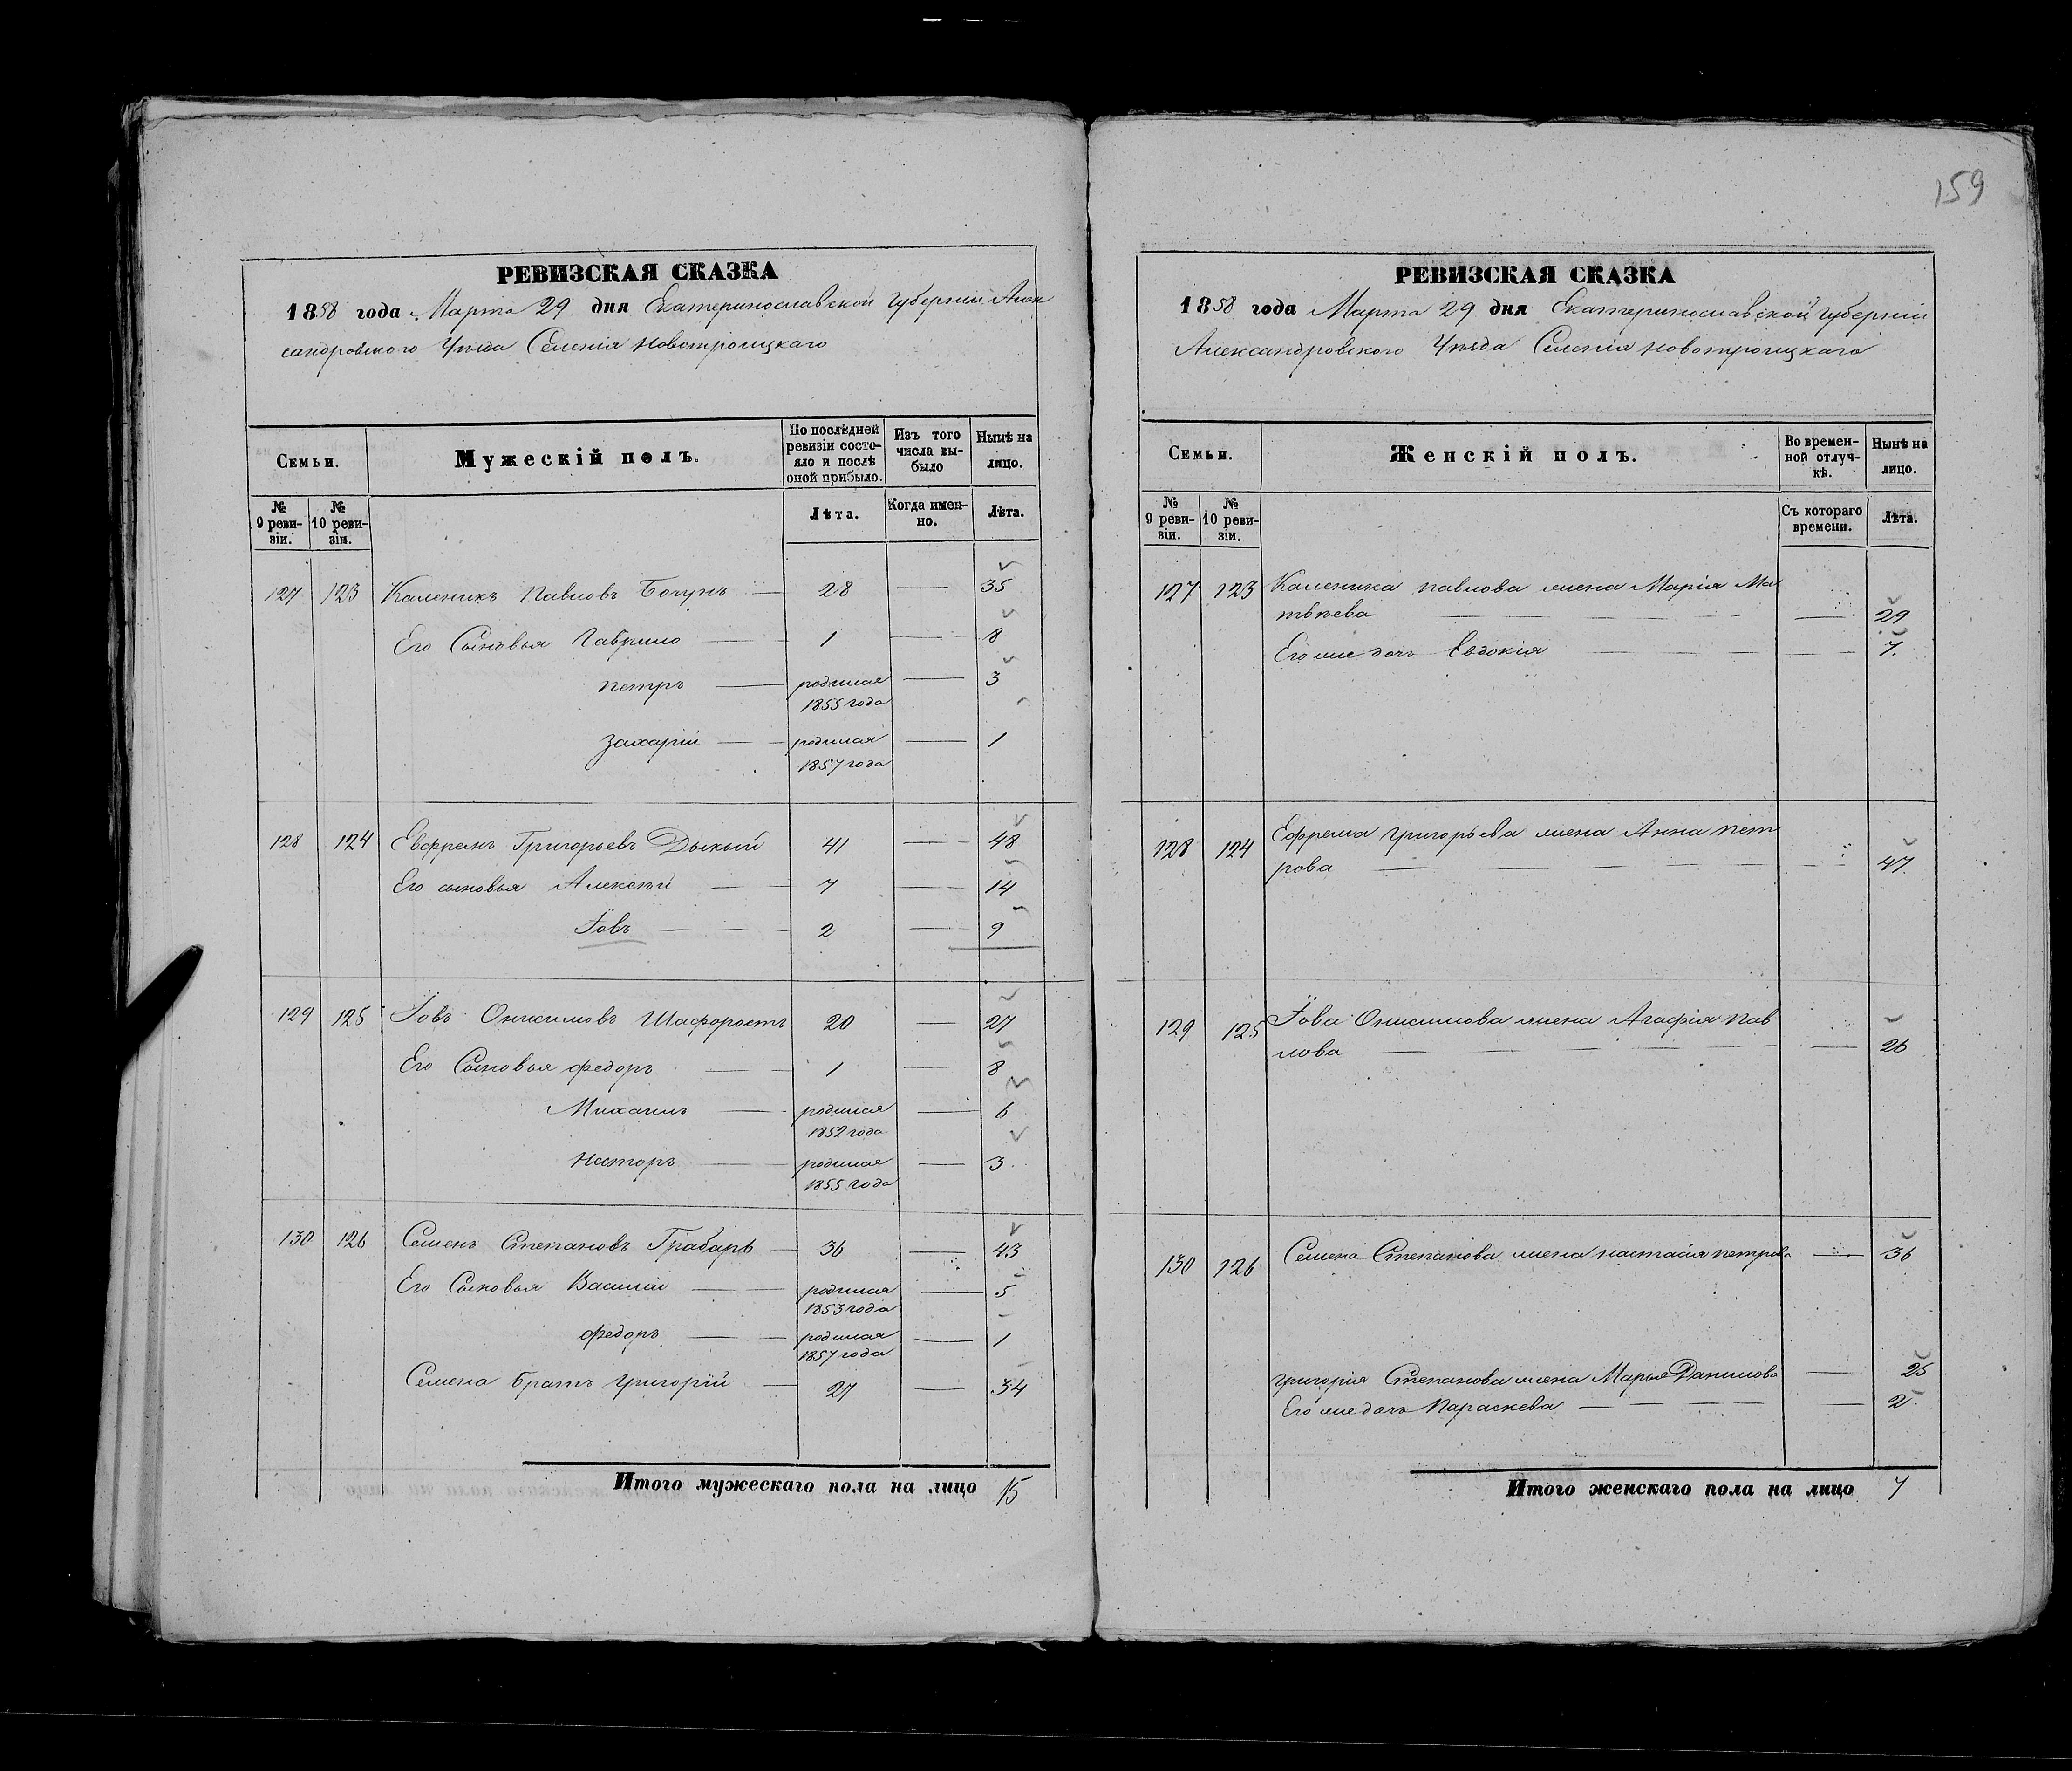 159
РЕВИЗСКАЯ СКАЗКА
1858 года Марта 29 дня Екатеринославской Губерніи Алек
сандровского Уѣзда Селенія Новотроицкаго
Семьи.
Мужескій полъ.
По послѣдней ревизіи состояло и послѣ оной прибыло.
Изъ того числа выбыло
Нынѣ на лицо.
№ 9 ревизіи.
№ 10 ревизіи.
Лѣта.
Когда именно.
Лѣта.
127 123 Каленикъ Павловъ — 28 — 35
Его Сыновья Гаврило — 1 — 8
петръ — родился 1855 года — 3
захарій — родился 1857 года — 1
128 124 Евфремъ Григорьевъ Дыкый 41 — 48
Его сыновья Алексѣй — 7 — 14
Іовъ — 2 — 9
129 125 Іовъ Онисимовъ Шафоростъ 20 — 27
Его Сыновья федоръ — 1 — 8
Михаилъ — родился 1852 года — 6
Несторъ — родился 1855 года — 3
130 126 Семенъ Степановъ Грабарь — 36 — 43
Его Сыновья Василій — родился 1853 года — 5
федоръ — родился 1857 года — 1
Семена братъ григорій — 27 — 34
Итого мужескаго пола на лицо 15
РЕВИЗСКАЯ СКАЗКА
1858 года Марта 29 дня Екатеринославской губерніи
Александровского Уѣзда Селенія Новотроицкаго
Семьи.
Женскій полъ.
Во временной отлучкѣ.
Нынѣ на лицо.
№ 9 ревизіи.
№ 10 ревизіи.
Съ котораго времени.
Лѣта.
127 123 Каленика павлова жена Марія Ма
твѣева — 29
Его же дочь Евдокія — 7
128 124 Ефрема григорьева жена Анна пет
рова — 47
129 125 Іова Онисимова жена Агафія пав
лова — 26
130 126 Семена Степанова жена настасія петрова — 36
григорія Степанова жена Марья Данилова — 25
Его же дочь Параскева — 2
Итого женскаго пола на лицо 7